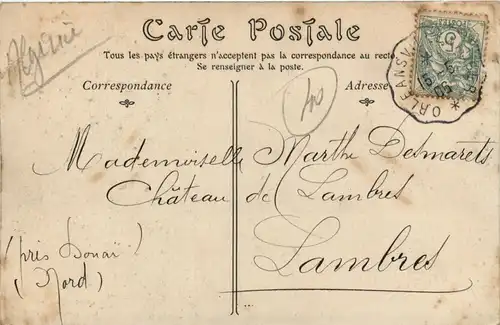 Algérie
Carte Postale
Tous les pays étrangers n'acceptent pas la correspondance au recto
Se renseigner à la poste.
Correspondance
Adresse
ORLÉANSV
5
40
Mademoiselle Marthe Desmarets
Château de Lambres
Lambres
(près Douai)
(Nord)